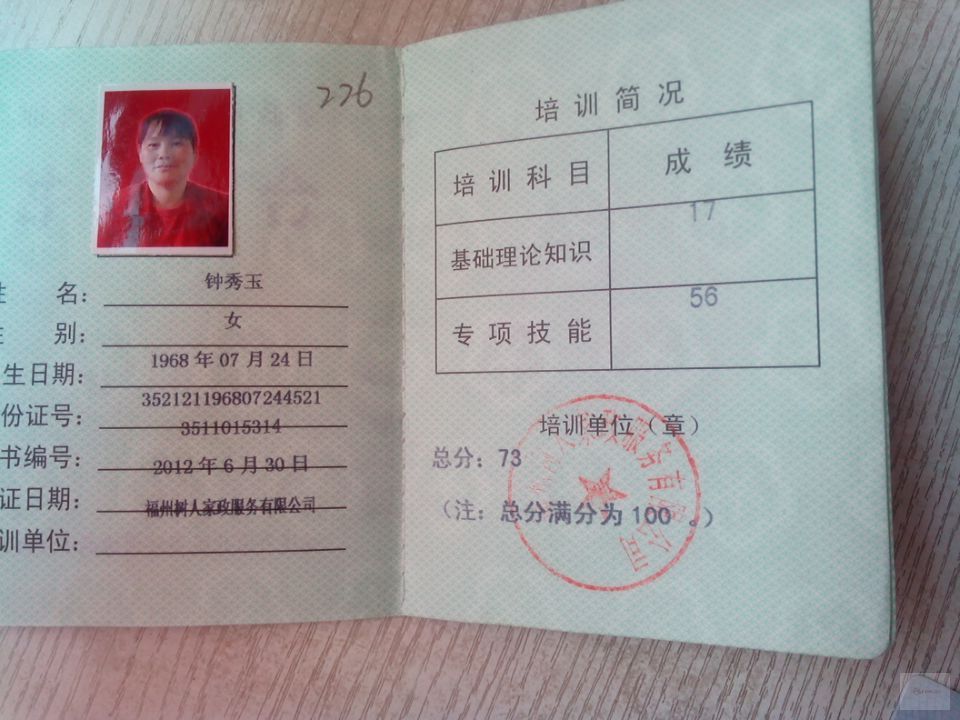 226
名： 钟秀玉
别： 女
生日期： 1968 年 07 月 24 日
份证号： 352121196807244521
书编号： 3511015314
证日期： 2012 年 6 月 30 日
训单位： 福州树人家政服务有限公司
培训简况
培训科目 成绩
基础理论知识 17
专项技能 56
培训单位（章）
总分：73
（注：总分满分为 100 。）
人家政服务有限公司